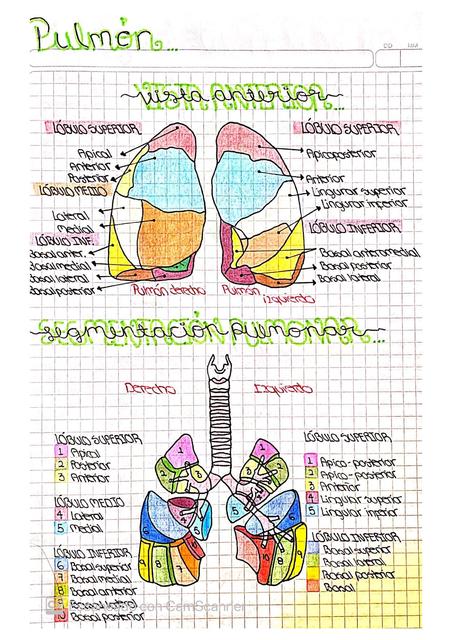 Pulmón...
vista anterior...
LÓBULO SUPERIOR
Apical
Anterior
Posterior
LÓBULO MEDIO
Lateral
Medial
LÓBULO INF.
Basal anter.
Basal medial
Basal lateral
Basal posterior
Pulmón derecho
LÓBULO SUPERIOR
Apicoposterior
Anterior
Lingular superior
Lingular inferior
LÓBULO INFERIOR
Basal anteromedial
Basal posterior
Basal lateral
Pulmón izquierdo
segmentación pulmonar...
Derecho
Izquierdo
LÓBULO SUPERIOR
1 Apical
2 Posterior
3 Anterior
LÓBULO MEDIO
4 Lateral
5 Medial
LÓBULO INFERIOR
6 Basal superior
7 Basal medial
8 Basal anterior
9 Basal lateral
10 Basal posterior
LÓBULO SUPERIOR
1 Apico-posterior
2 Apico-posterior
3 Anterior
4 Lingular superior
5 Lingular inferior
LÓBULO INFERIOR
Basal superior
Basal lateral
Basal posterior
Basal
con CamScanner